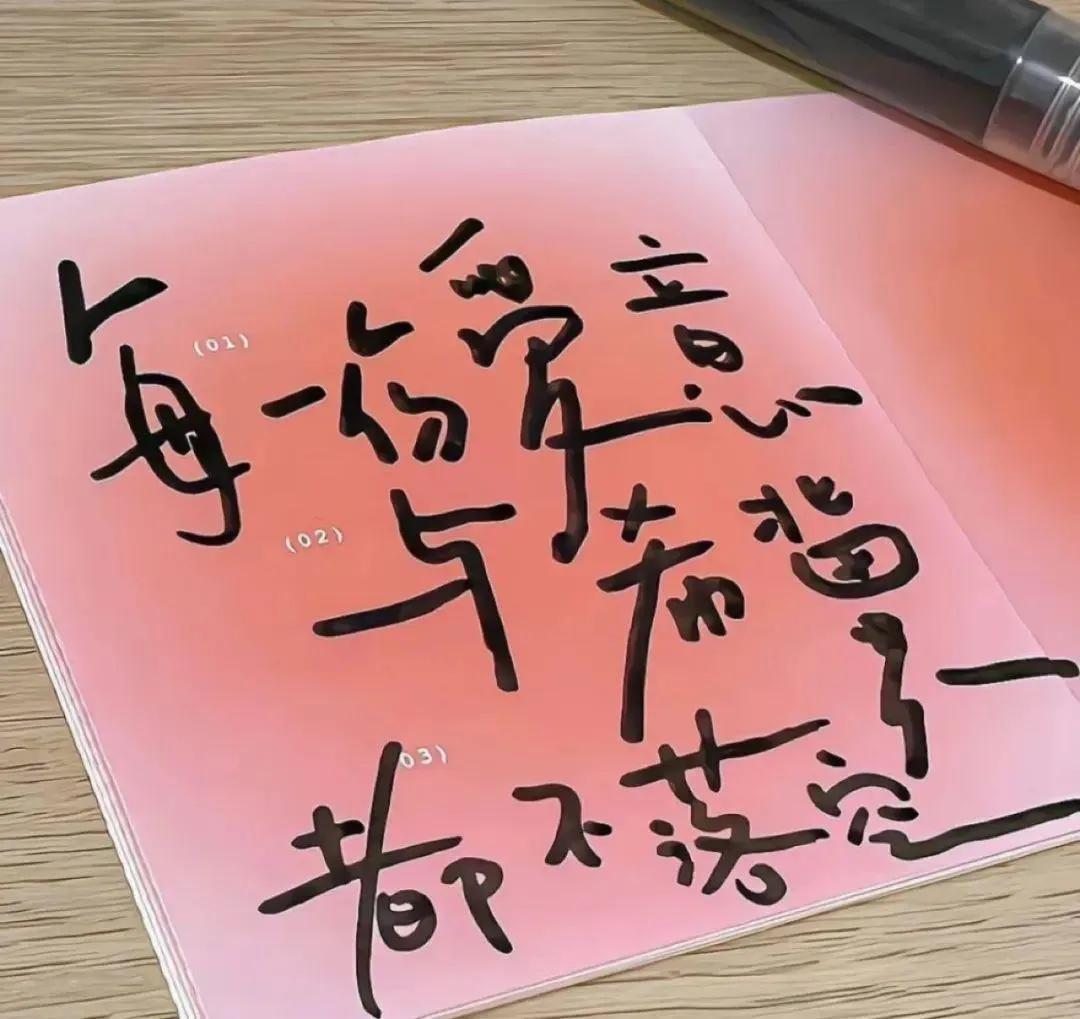 (01)
每一份爱意
(02)
与希冀
03)
都不落空